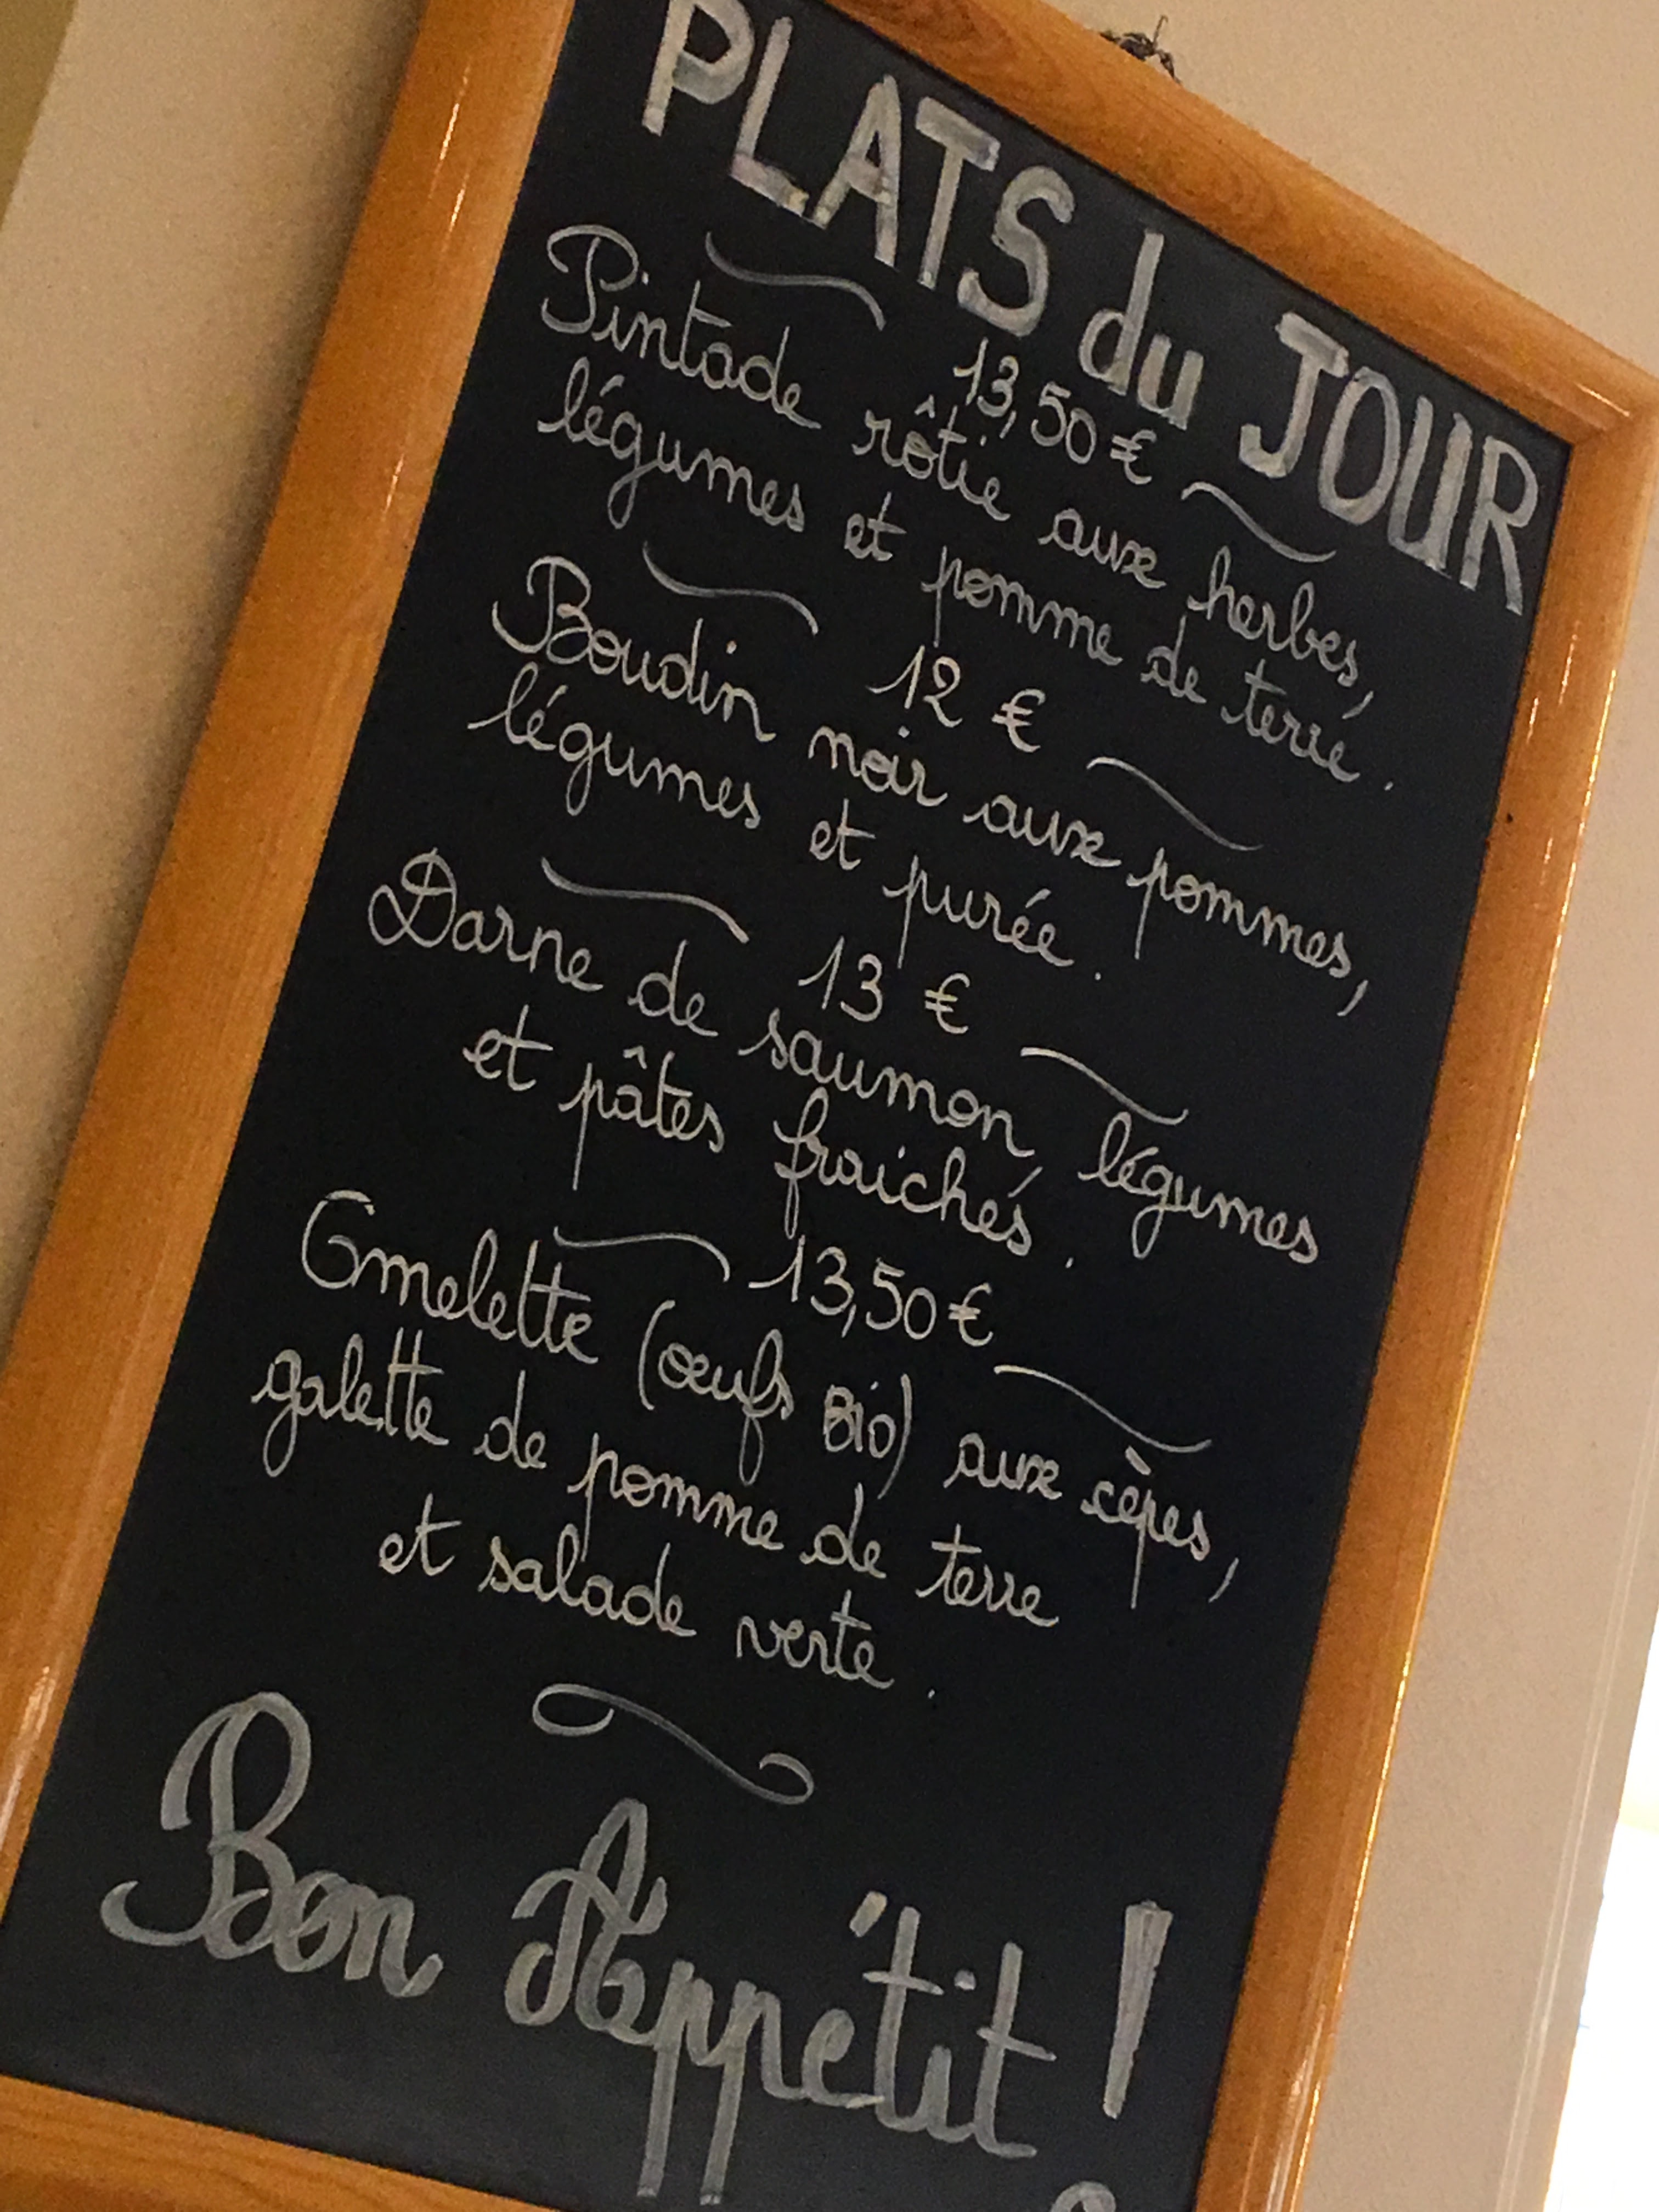 PLATS du JOUR
13,50 €
Pintade rôtie aux herbes,
légumes et pomme de terre.
12 €
Boudin noir aux pommes,
légumes et purée.
13 €
Darne de saumon, légumes
et pâtes fraiches.
13,50 €
Omelette (œufs BIO) aux cèpes,
galette de pomme de terre
et salade verte.
Bon Appétit !